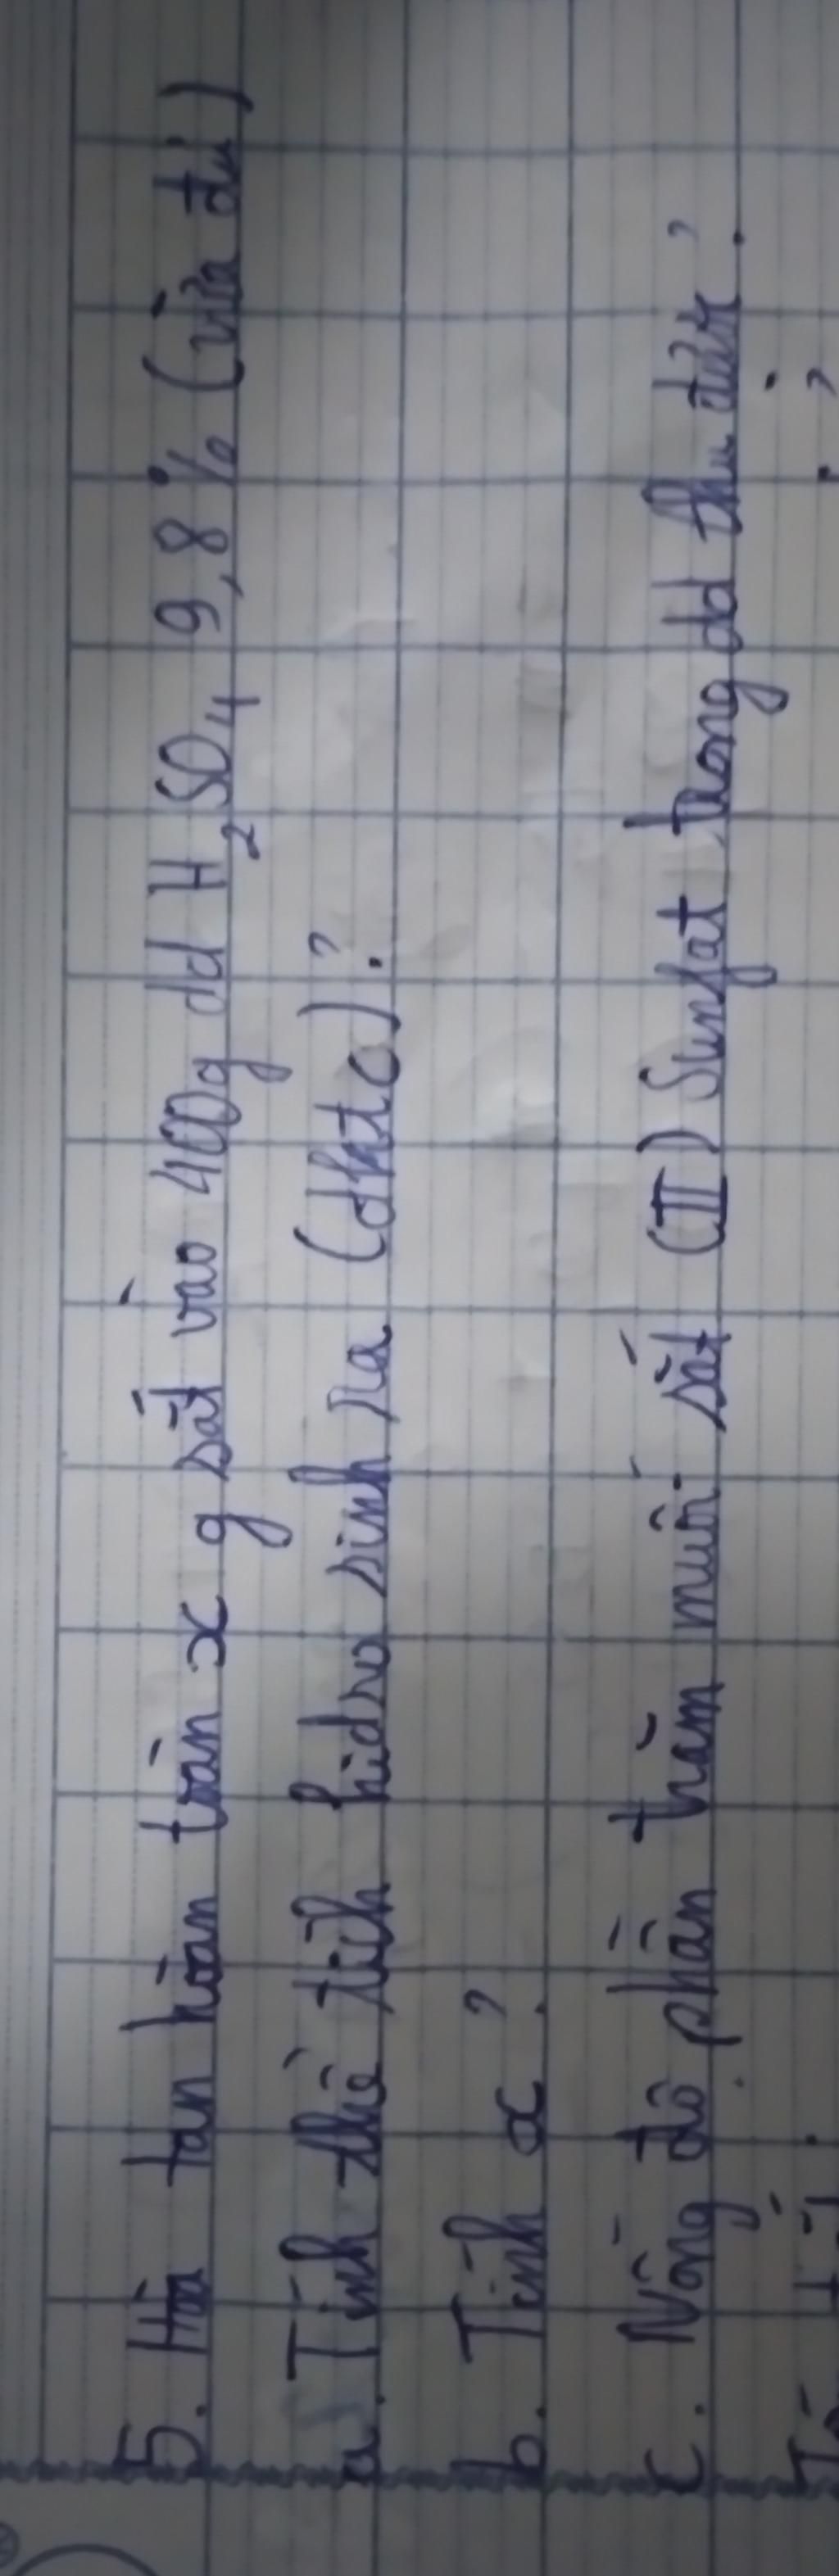 5. Hòa tan hoàn toàn x g sắt vào 400g dd H2SO4 9,8% (vừa đủ)
a. Tính thể tích hiđro sinh ra (đktc)?
b. Tính x?
c. Nồng độ phần trăm muối sắt (II) Sunfat trong dd thu được?